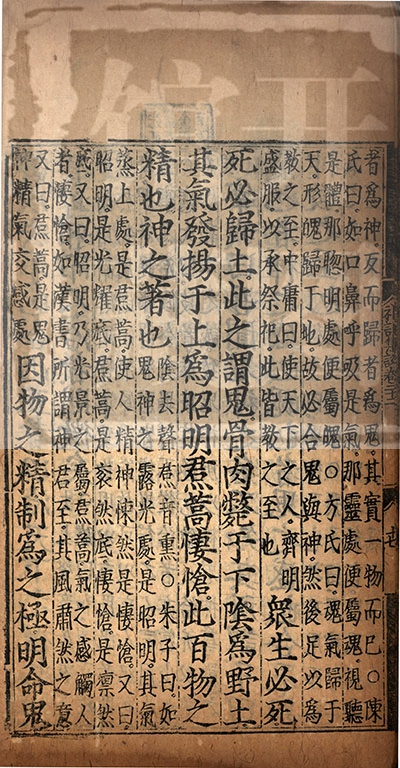 者爲神反而歸者爲鬼其實一物而已○陳
氏曰如口鼻呼吸是氣那靈處便屬魂視聽
是體那聦明處便屬魄○方氏曰魂氣歸于
天形魄歸于地故必合鬼與神然後足以爲
教之至中庸曰使天下之人齊明
盛服以承祭祀此皆教之至也
衆生必死
死必歸土此之謂鬼骨肉斃于下陰爲野土
其氣發揚于上爲昭明焄蒿悽愴此百物之
精也神之著也
陰去聲焄音熏○朱子曰如
鬼神之露光處是昭明其氣
蒸上處是焄蒿使人精神悚然是悽愴又曰
昭明是光耀底焄蒿是衮然底悽愴是凛然
底又曰昭明乃光景之屬焄蒿氣之感觸人
者悽愴如漢書所謂神君至其風肅然之意
又曰焄蒿是鬼
神精氣交感處
因物之精制爲之極明命鬼